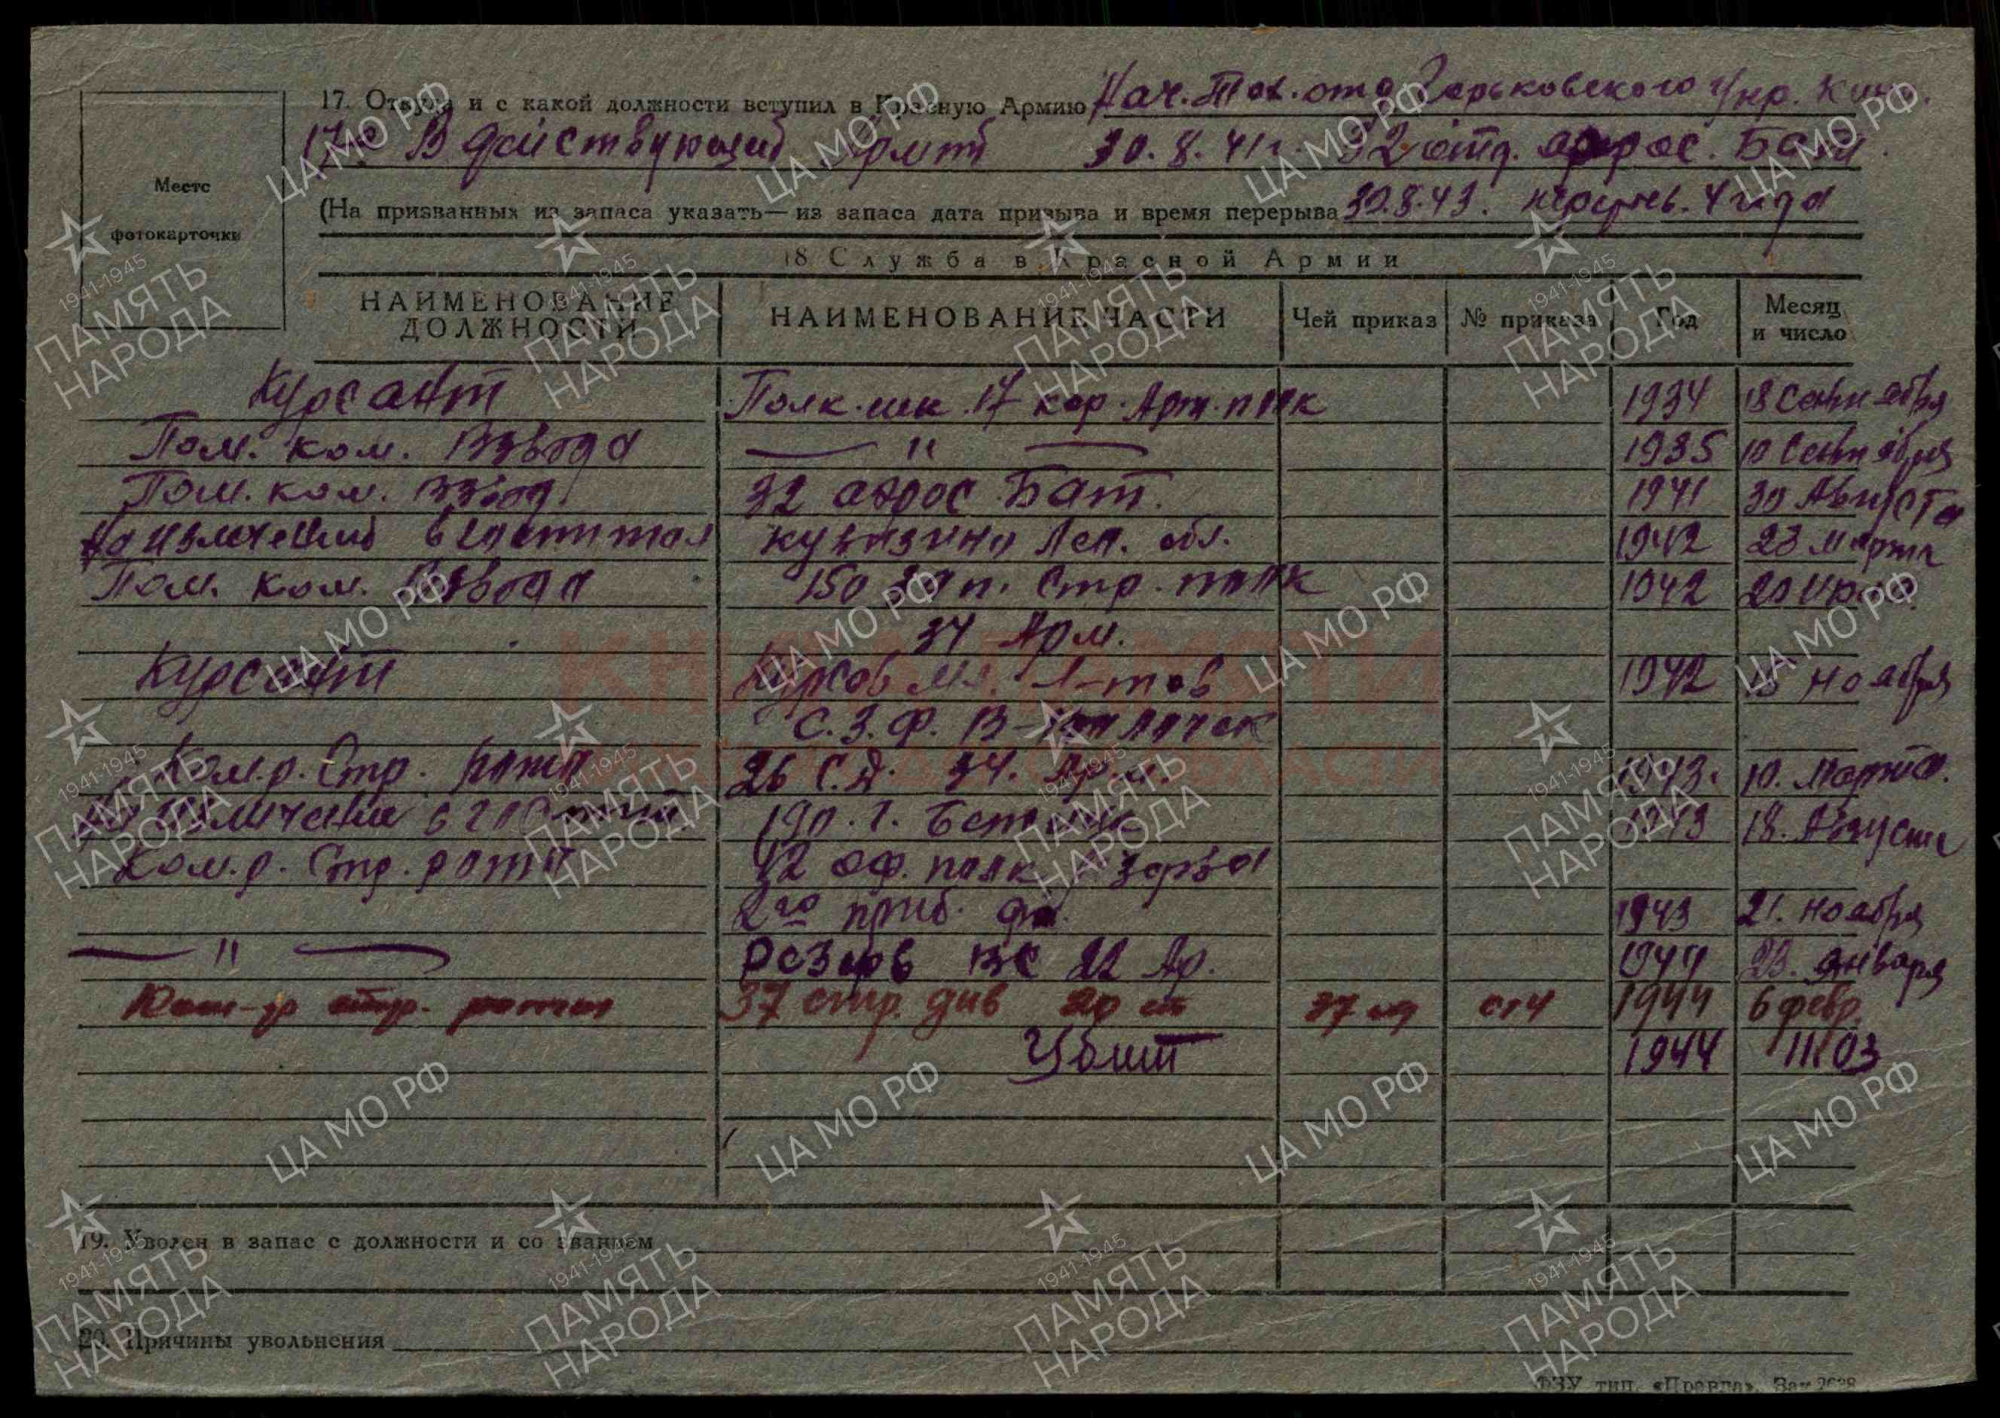 17. Откуда и с какой должности вступил в Красную Армию Нач. отд. Харьковского Упр. Кино.
В действующей Армии 30.8.41 г. 32 отд. аэрос. Бат.
Место
фотокарточки
(На призванных из запаса указать—из запаса дата призыва и время перерыва 4 года
18 Служба в Красной Армии
НАИМЕНОВАНИЕ ДОЛЖНОСТИ НАИМЕНОВАНИЕ ЧАСТИ Чей приказ № приказа Год Месяц и число
Курсант Полк. шк. 17 кор. Арт. полк 1934 18 Сентября
Пом. ком. Взвода — " — 1935 10 Сентября
Пом. ком. Взвода 32 аэрос. Бат. 1941 30 Августа
На излечении в госпитал Лен. обл. 1942 23 Марта
Пом. ком. Взвода 150 зап. Стр. полк 1942 20
34 Арм.
Курсант Курсов Мл. Л-тов 1942 15 Ноября
С.З.Ф. В-
Ком.р. Стр. роты 26 С.Д. 34. Арм. 1943. 10. Марта.
На излечении в госпит. 1943 18. Августа
Ком.р. Стр. роты 42 оф. полк резерва
2го приб. фр. 1943 21. Ноября
— " — Резерв ВС 22 Ар. 1944 23. Января
Ком-р стр. роты 37 стр. див 37 сд 014 1944 6 февр.
Убит 1944 11/03
19. Уволен в запас с должности и со званием
20. Причины увольнения
ФЗУ тип. «Правда». Зак. 2688
КНИГА ПАМЯТИ
ОБЛАСТИ
ЦА МО РФ
1941-1945
ПАМЯТЬ
НАРОДА